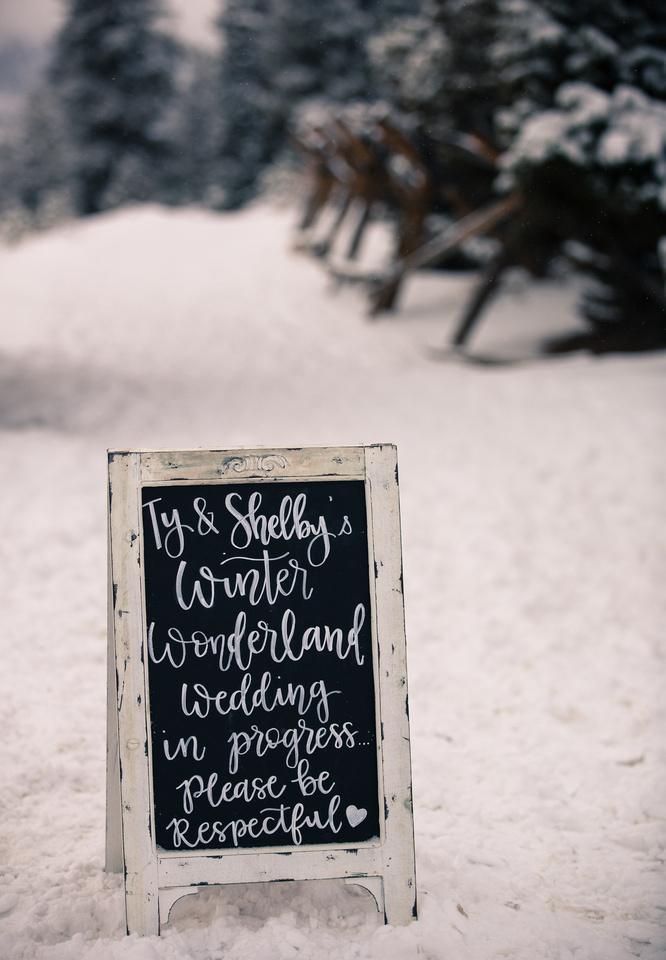 Ty & Shelby's
Winter
Wonderland
Wedding
in progress...
Please be
Respectful♥